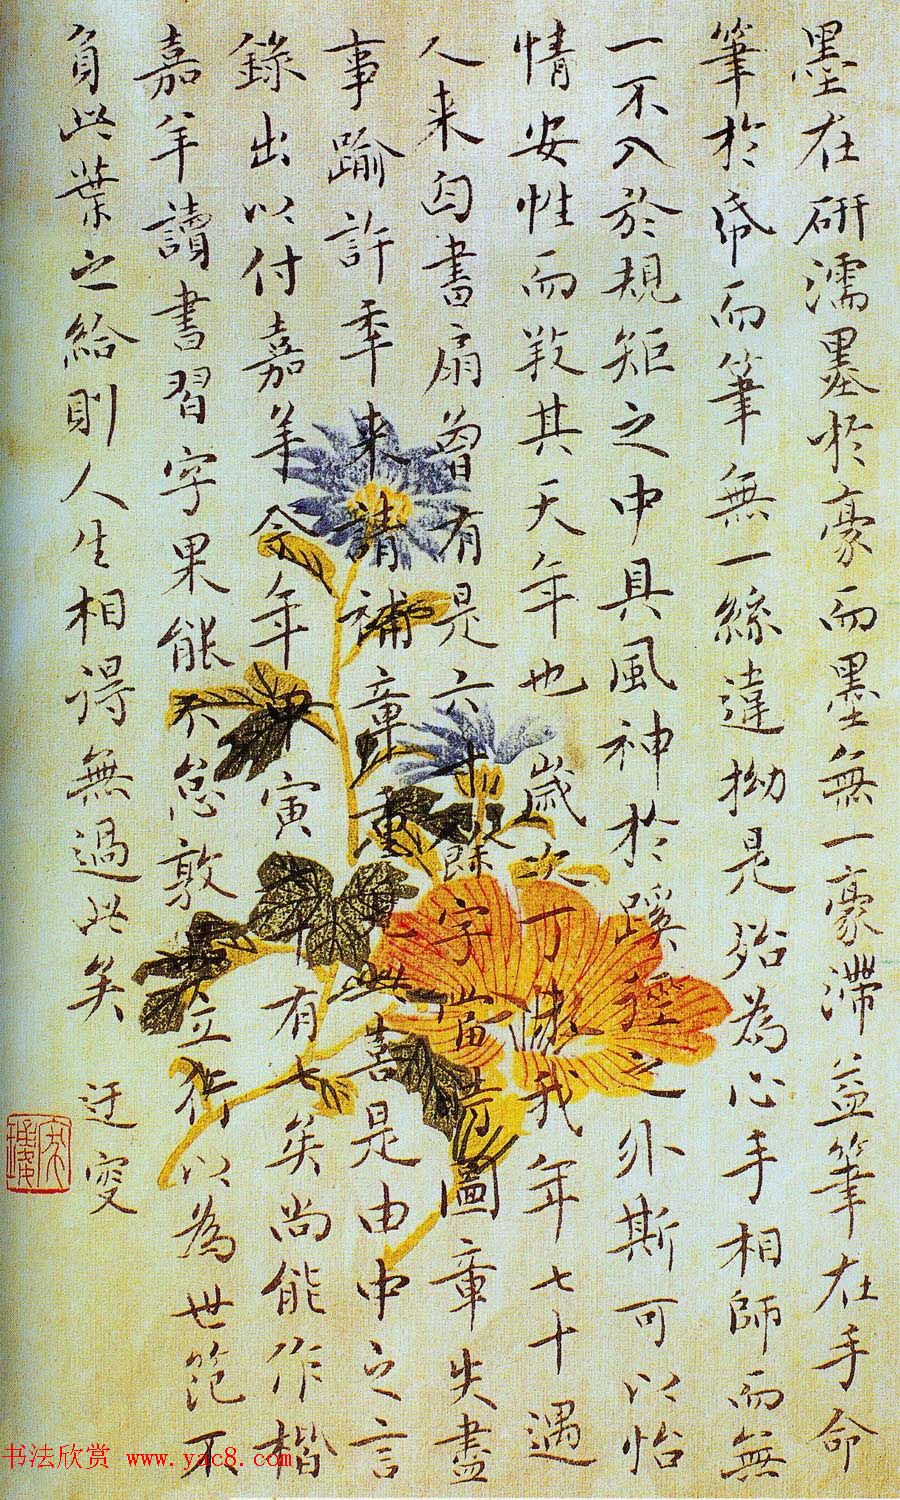 墨在研濡墨於豪而墨無一豪滯益筆在手命
筆於帋而筆無一絲違拗是殆為心手相師而無
一不入於規矩之中具風神於蹊徑之外斯可以怡
情安性而羖其天年也 歲次丁 我年七十遇
人来匄書扇曾有是六十 字當 圖章失盡
事踰許年来請補章重 此喜是由中之言
錄出以付嘉羊今年甲寅 有七矣尚能作楷
嘉羊讀書習字果能不怠敦 立術以為世範不
負此葉之給則人生相得無過此矣 迂叟
书法欣赏 www.yac8.com